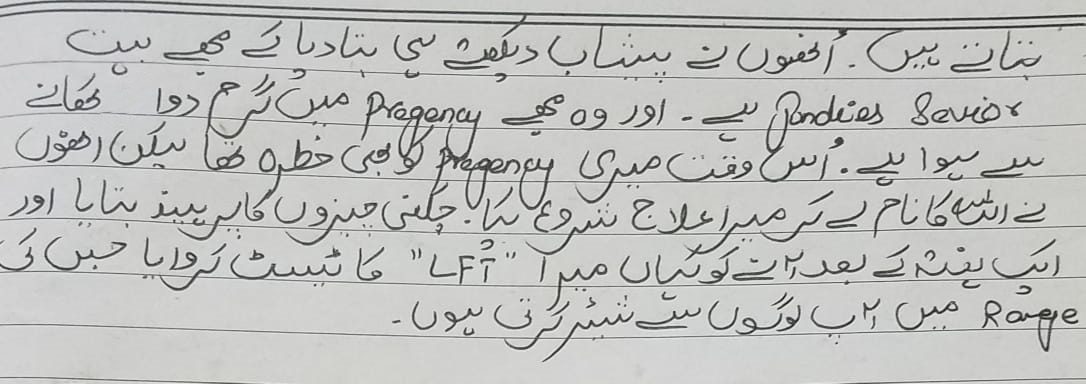 بتاتے ہیں۔ اُنھوں نے پیشاب دیکھتے ہی بتا دیا کے مجھے بہت
Jondies Sevior ہے۔ اور وہ مجھے Pregency میں گرم دوا کھانے
سے ہوا ہے۔ اُس وقت میری Pregency کو بھی خطرہ تھا لیکن انھوں
نے اللہ کا نام لے کر میرا علاج شروع کیا۔ چکنی چیزوں کا پرہیز بتایا اور
ایک ہفتہ کے بعد آنے کو کہاں میرا "LFT" کا ٹیسٹ کروایا جس کی
Range میں آپ لوگوں سے شیئر کرتی ہوں۔